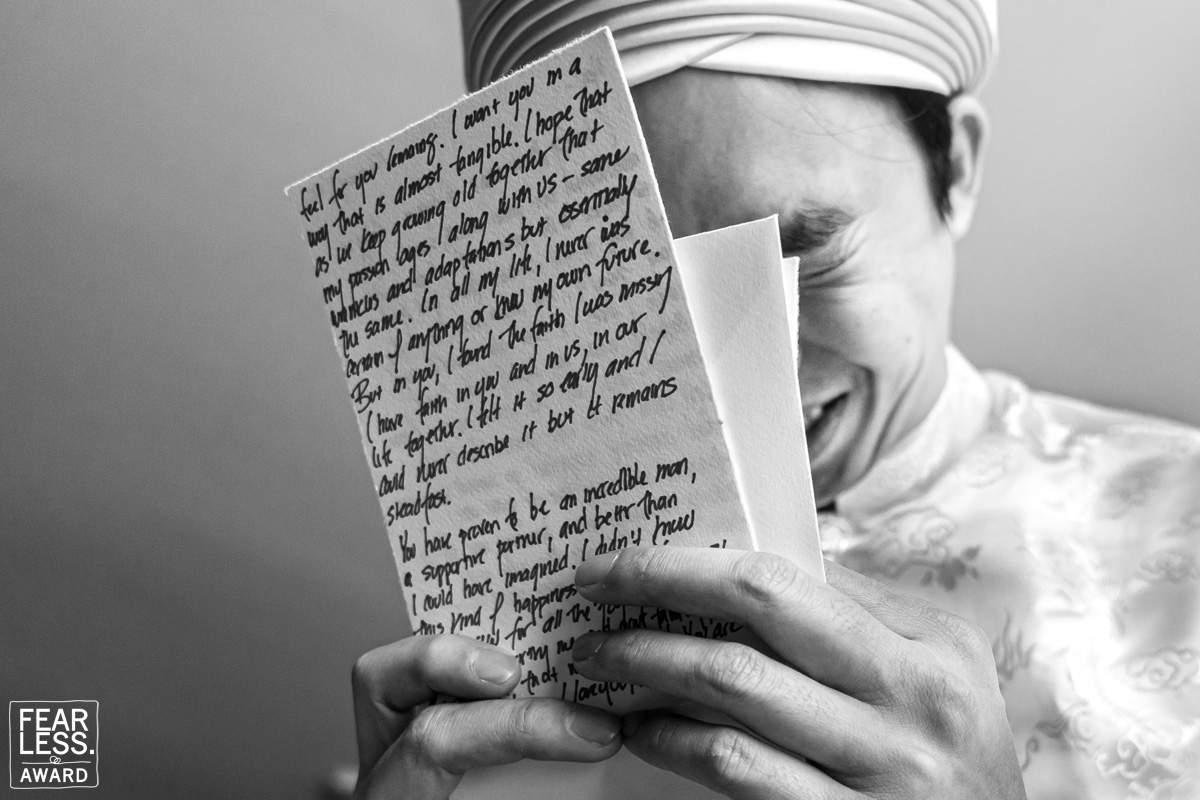 feel for you remaing. I want you in a
way that is almost tangible. I hope that
as we keep growing old together that
my passion ages along with us - some
wrinkles and adaptations but essentially
the same. In all my life, I never was
certain of anything or knew my own future.
But in you, I found the faith I was missing
I have faith in you and in us, in our
life together. I felt it so early and I
could never describe it but it remains
steadfast.
You have proven to be an incredible man,
a supportive partner, and better than
I could have imagined. I didn't know
this kind of happiness
for all the
me
that
I love you
FEAR
LESS.
AWARD